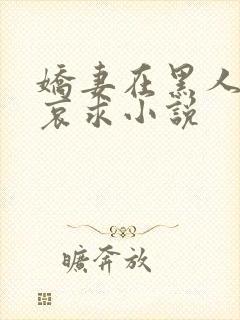 嬌妻在黑人
哀求小說
曠奔放